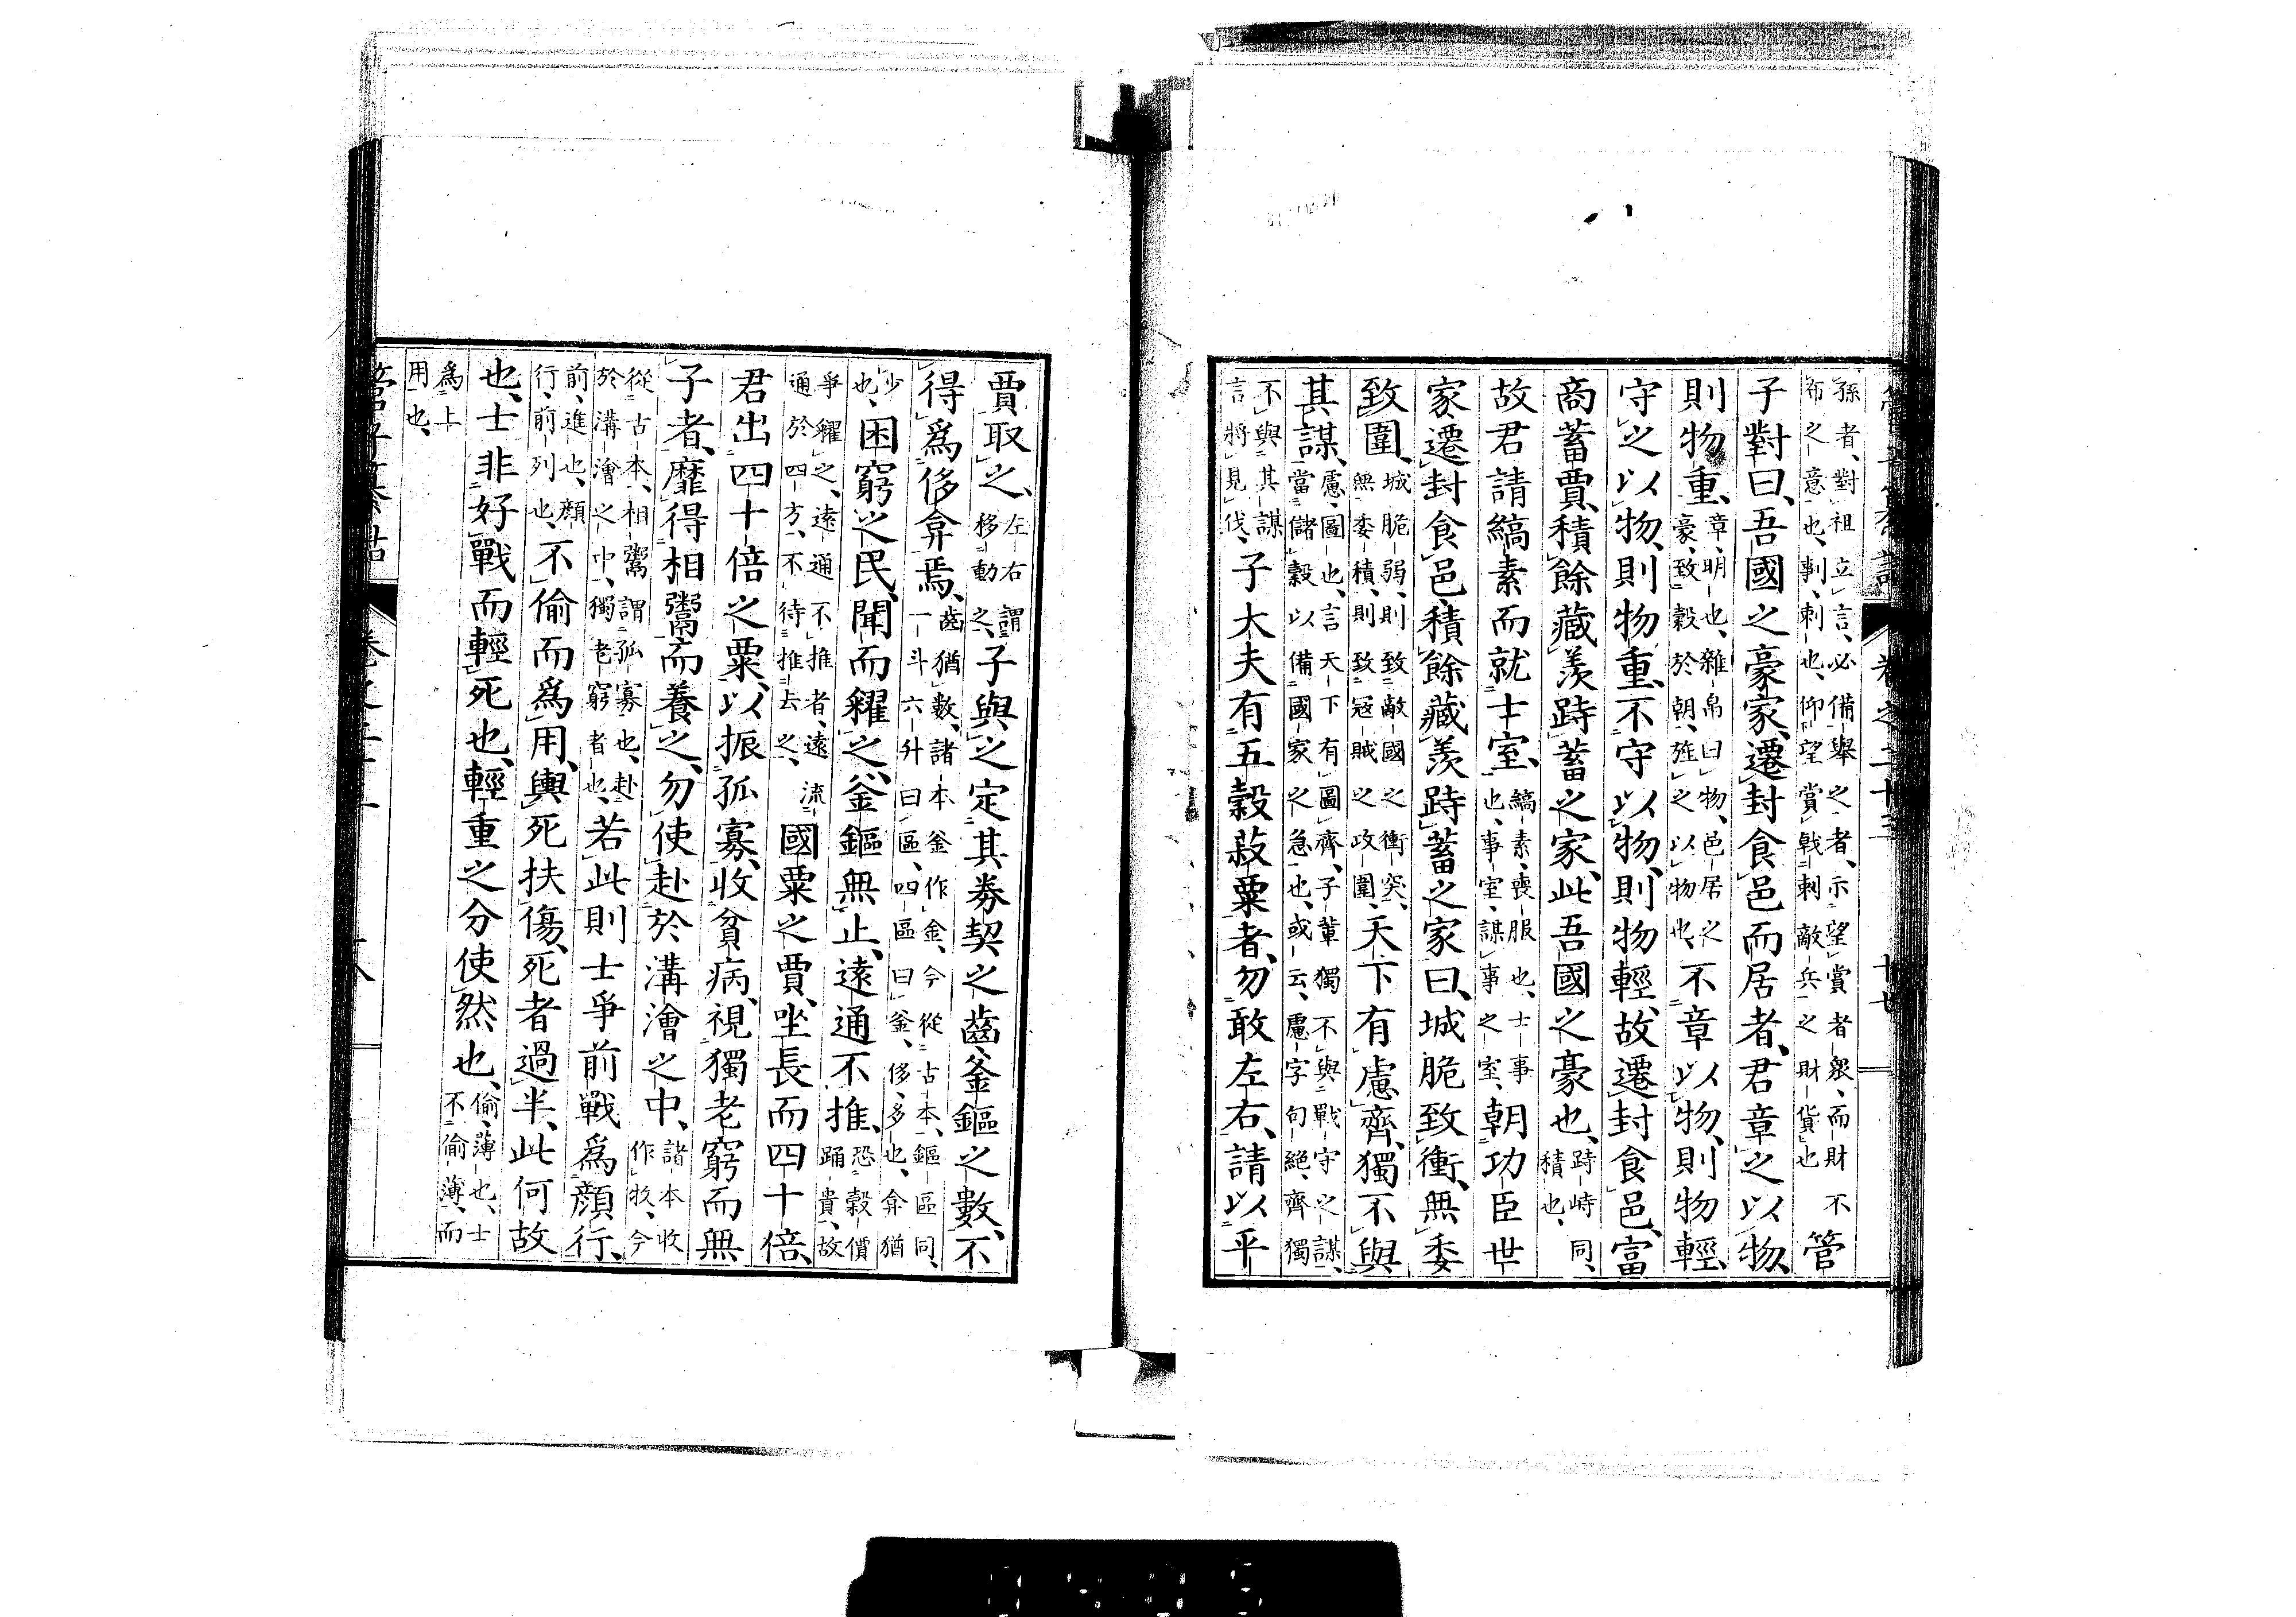 孫者、對祖立言、必備舉之者、示望賞者衆、而財不
布之意也、剚、刺也、仰望賞戟刺敵兵之財貨也管
子對曰、吾國之豪家、遷封食邑而居者、君章之以物、
則物重、章、明也、雜帛曰物、邑居之
豪、致穀於朝、旌之以物也、不章以物、則物輕、
守之以物、則物重、不守以物、則物輕、故遷封食邑、富
商蓄賈、積餘藏羨跱蓄之家、此吾國之豪也、跱峙同、
積也、
故君請縞素而就士室、縞素、喪服也、士事
也、事室、謀事之室、朝功臣世
家、遷封食邑、積餘藏羨跱蓄之家曰、城脆致衝、無委
致圍、城脆弱、則致敵國之衝突、
無委積、則致冦賊之攻圍、天下有慮、齊獨不與
其謀、慮、圖也、言天下有圖齊、子輩獨不與戰守之謀、
當儲穀以備國家之急也、或云、慮字句絶、齊獨
不與其謀
言將見伐、子大夫有五穀菽粟者、勿敢左右、請以平
賈取之、左右謂
移動之、子與之定其券契之齒、釜鏂之數、不
得爲侈弇焉、齒猶數、諸本釜作金、今從古本、鏂區同、
一斗六升曰區、四區曰釜、侈、多也、弇猶
少
也、困窮之民、聞而糴之、釜鏂無止、遠通不推、恐穀價
踊貴、故
爭糴之、遠通不推者、遠流
通於四方、不待推去之、國粟之賈、坐長而四十倍、
君出四十倍之粟、以振孤寡、收貧病、視獨老窮而無
子者、靡得相鬻而養之、勿使赴於溝澮之中、諸本收
作牧、今
從古本、相鬻謂孤寡也、赴
於溝澮之中、獨老窮者也、若此則士爭前戰爲顏行、
前、進也、顏
行、前列也、不偷而爲用、輿死扶傷、死者過半、此何故
也、士非好戰而輕死也、輕重之分使然也、偷、薄也、士
不偷薄、而
爲上
用也、